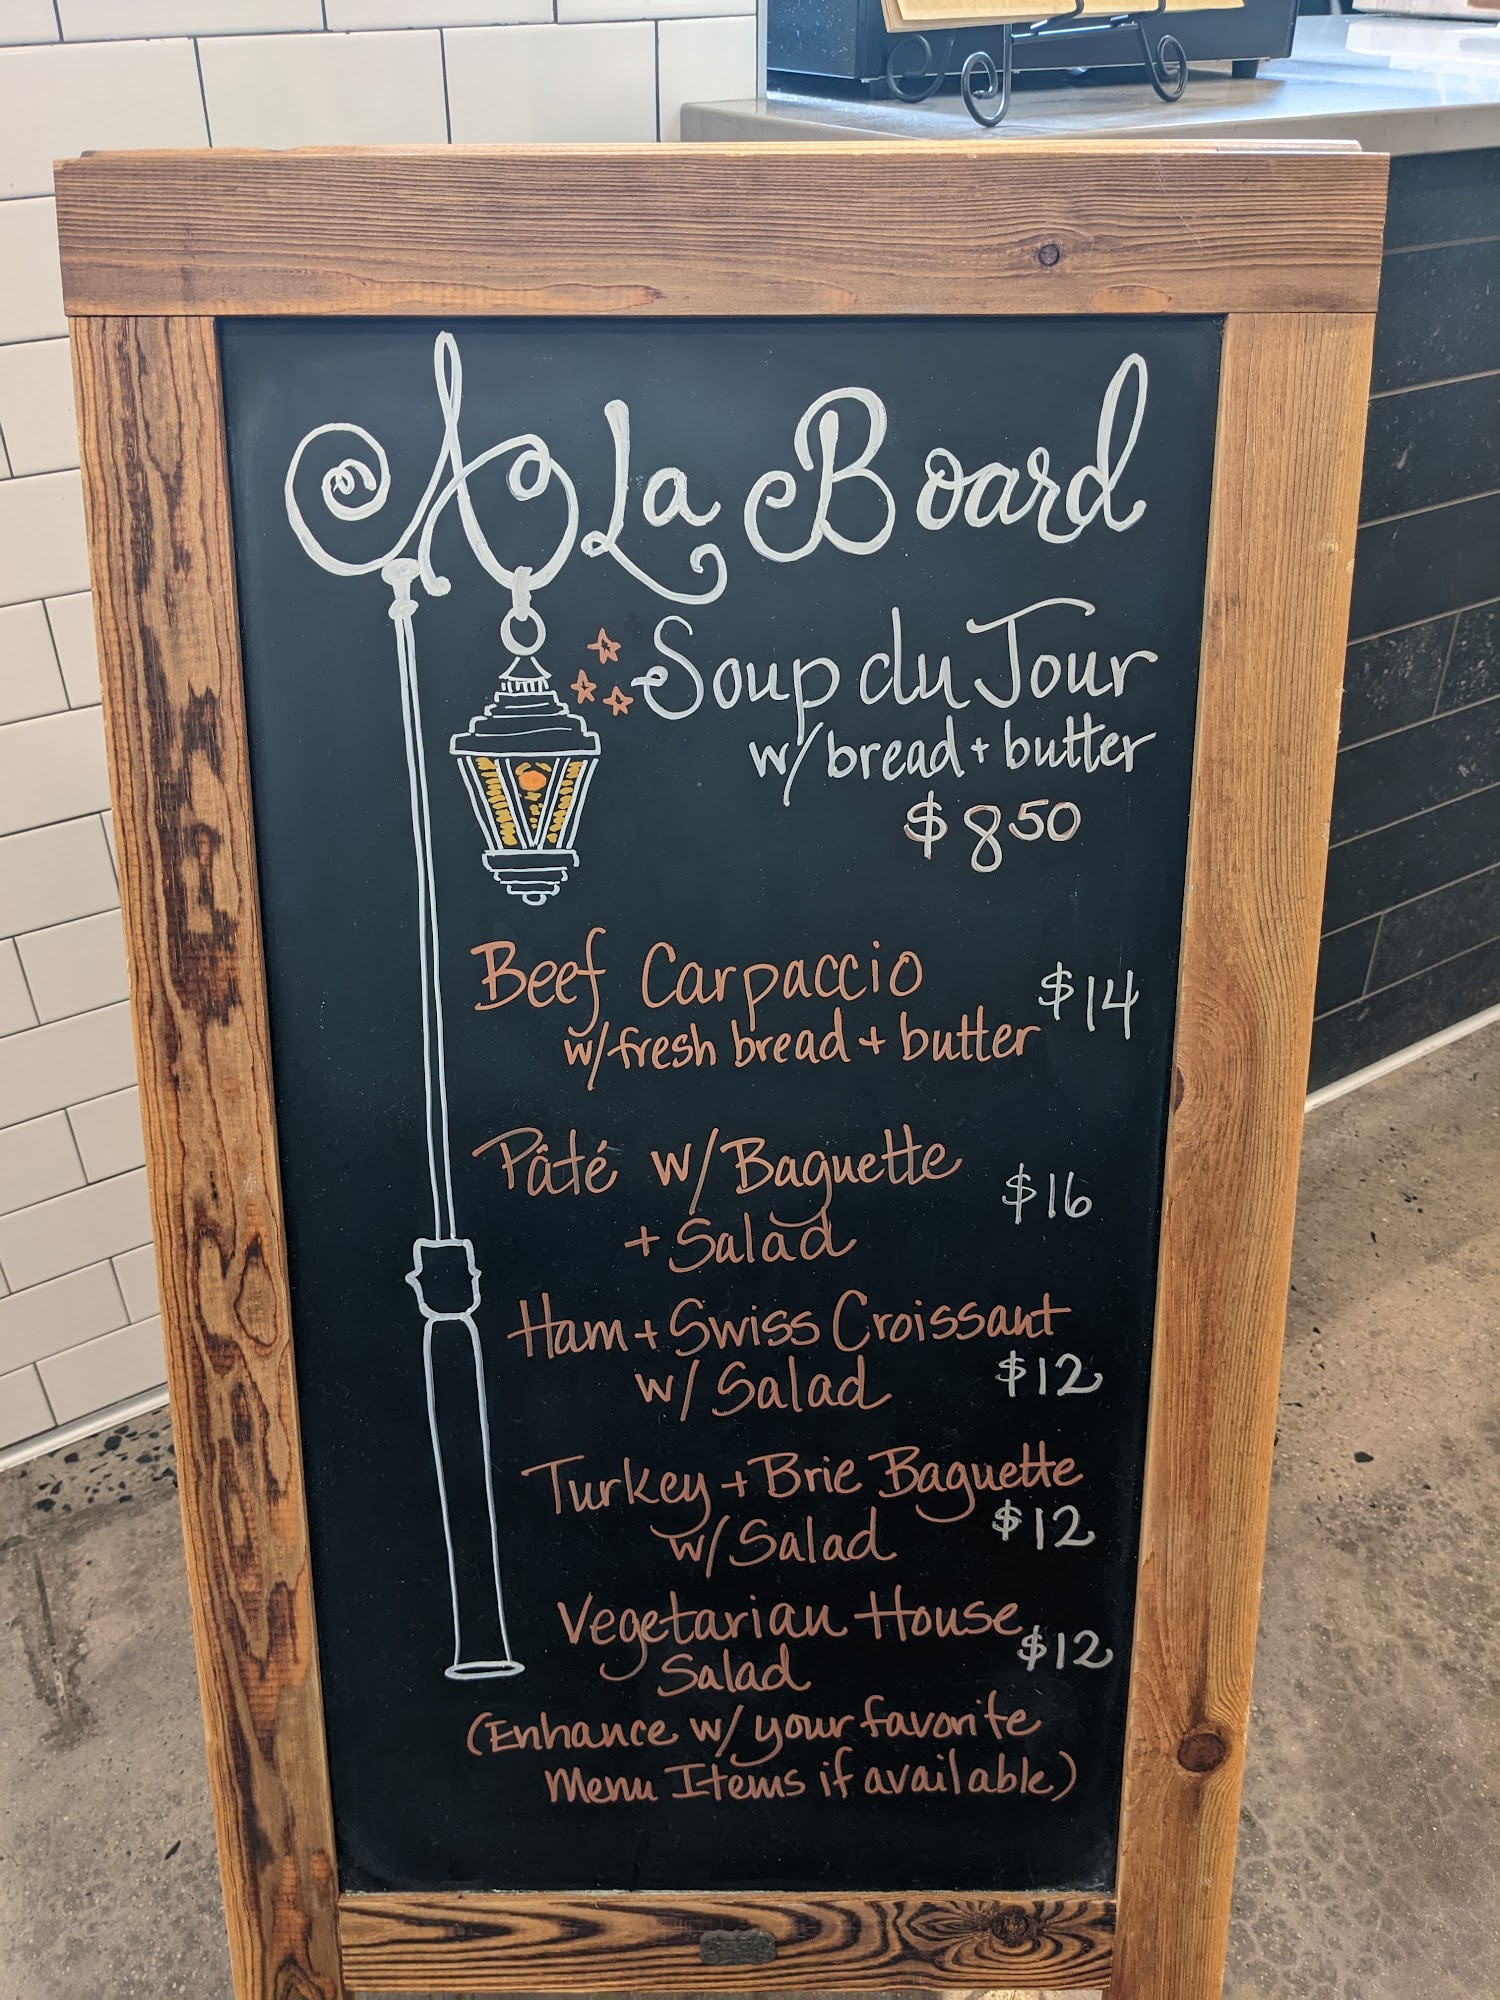 A La Board
Soup du Jour
w/ bread + butter
$8.50
Beef Carpaccio
$14
w/ fresh bread + butter
Pâté w/ Baguette
$16
+ Salad
Ham + Swiss Croissant
w/ Salad $12
Turkey + Brie Baguette
w/ Salad $12
Vegetarian House
Salad $12
(Enhance w/ your favorite
Menu Items if available)